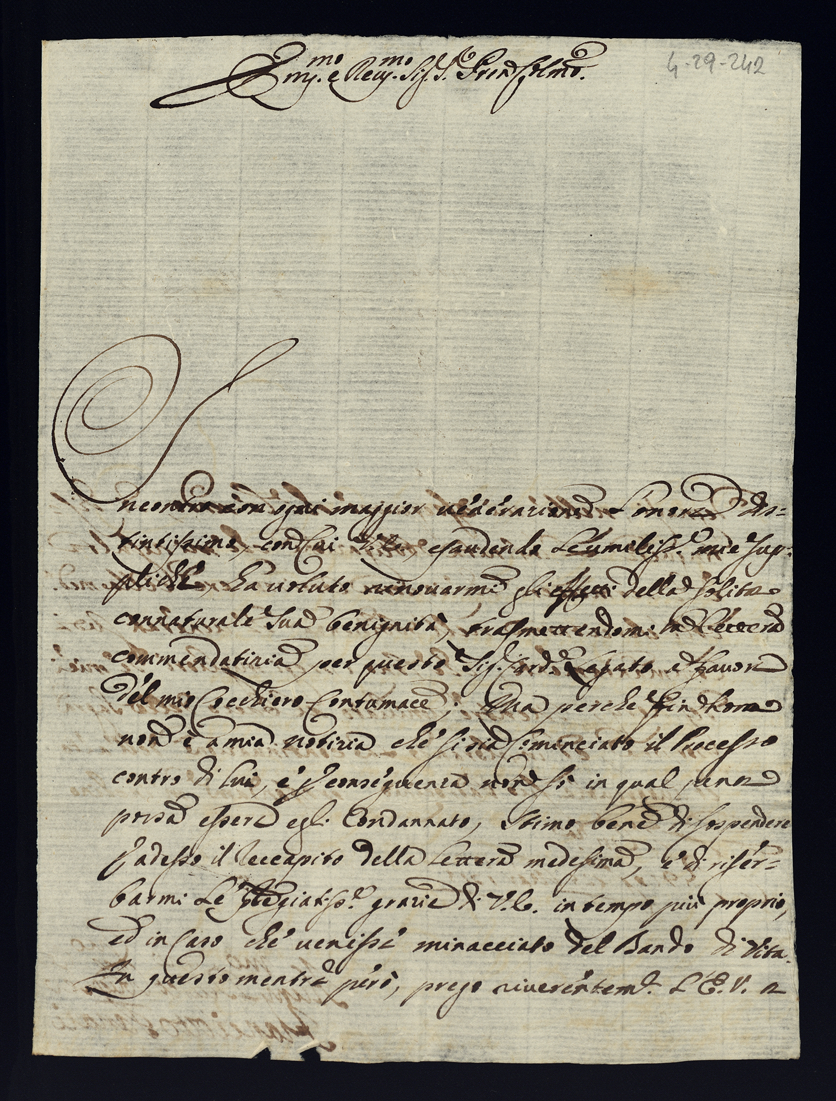 4-29-242
Em.mo e Rev.mo Sig.r P.rone
Incontro con ogni maggior venerazione l'onore dis=
tintissimo, con cui V.E. esaudendo le umiliss.e mie sup=
pliche ha voluto rinovarmi gli effetti della solita
connaturale sua benignità, trasmettendomi la lettera
commendatizia per questo Sig.r Card.e Legato a favore
del mio Cocchiero Contumace; Ma perche fin hora
non è a mia notizia che si sia Cominciato il Processo
contro di lui, e p conseguenza non so in qual pena
possa essere egli Condannato, stimo bene di sospendere
p adesso il reccapito della lettera medesima, e di riser=
barmi le pregiatiss.e grazie di V.E. in tempo più proprio,
ed in Caso che venisse minacciato del Bando di Vita.
In questo mentre però, prego riverentem.e l'E.V. a